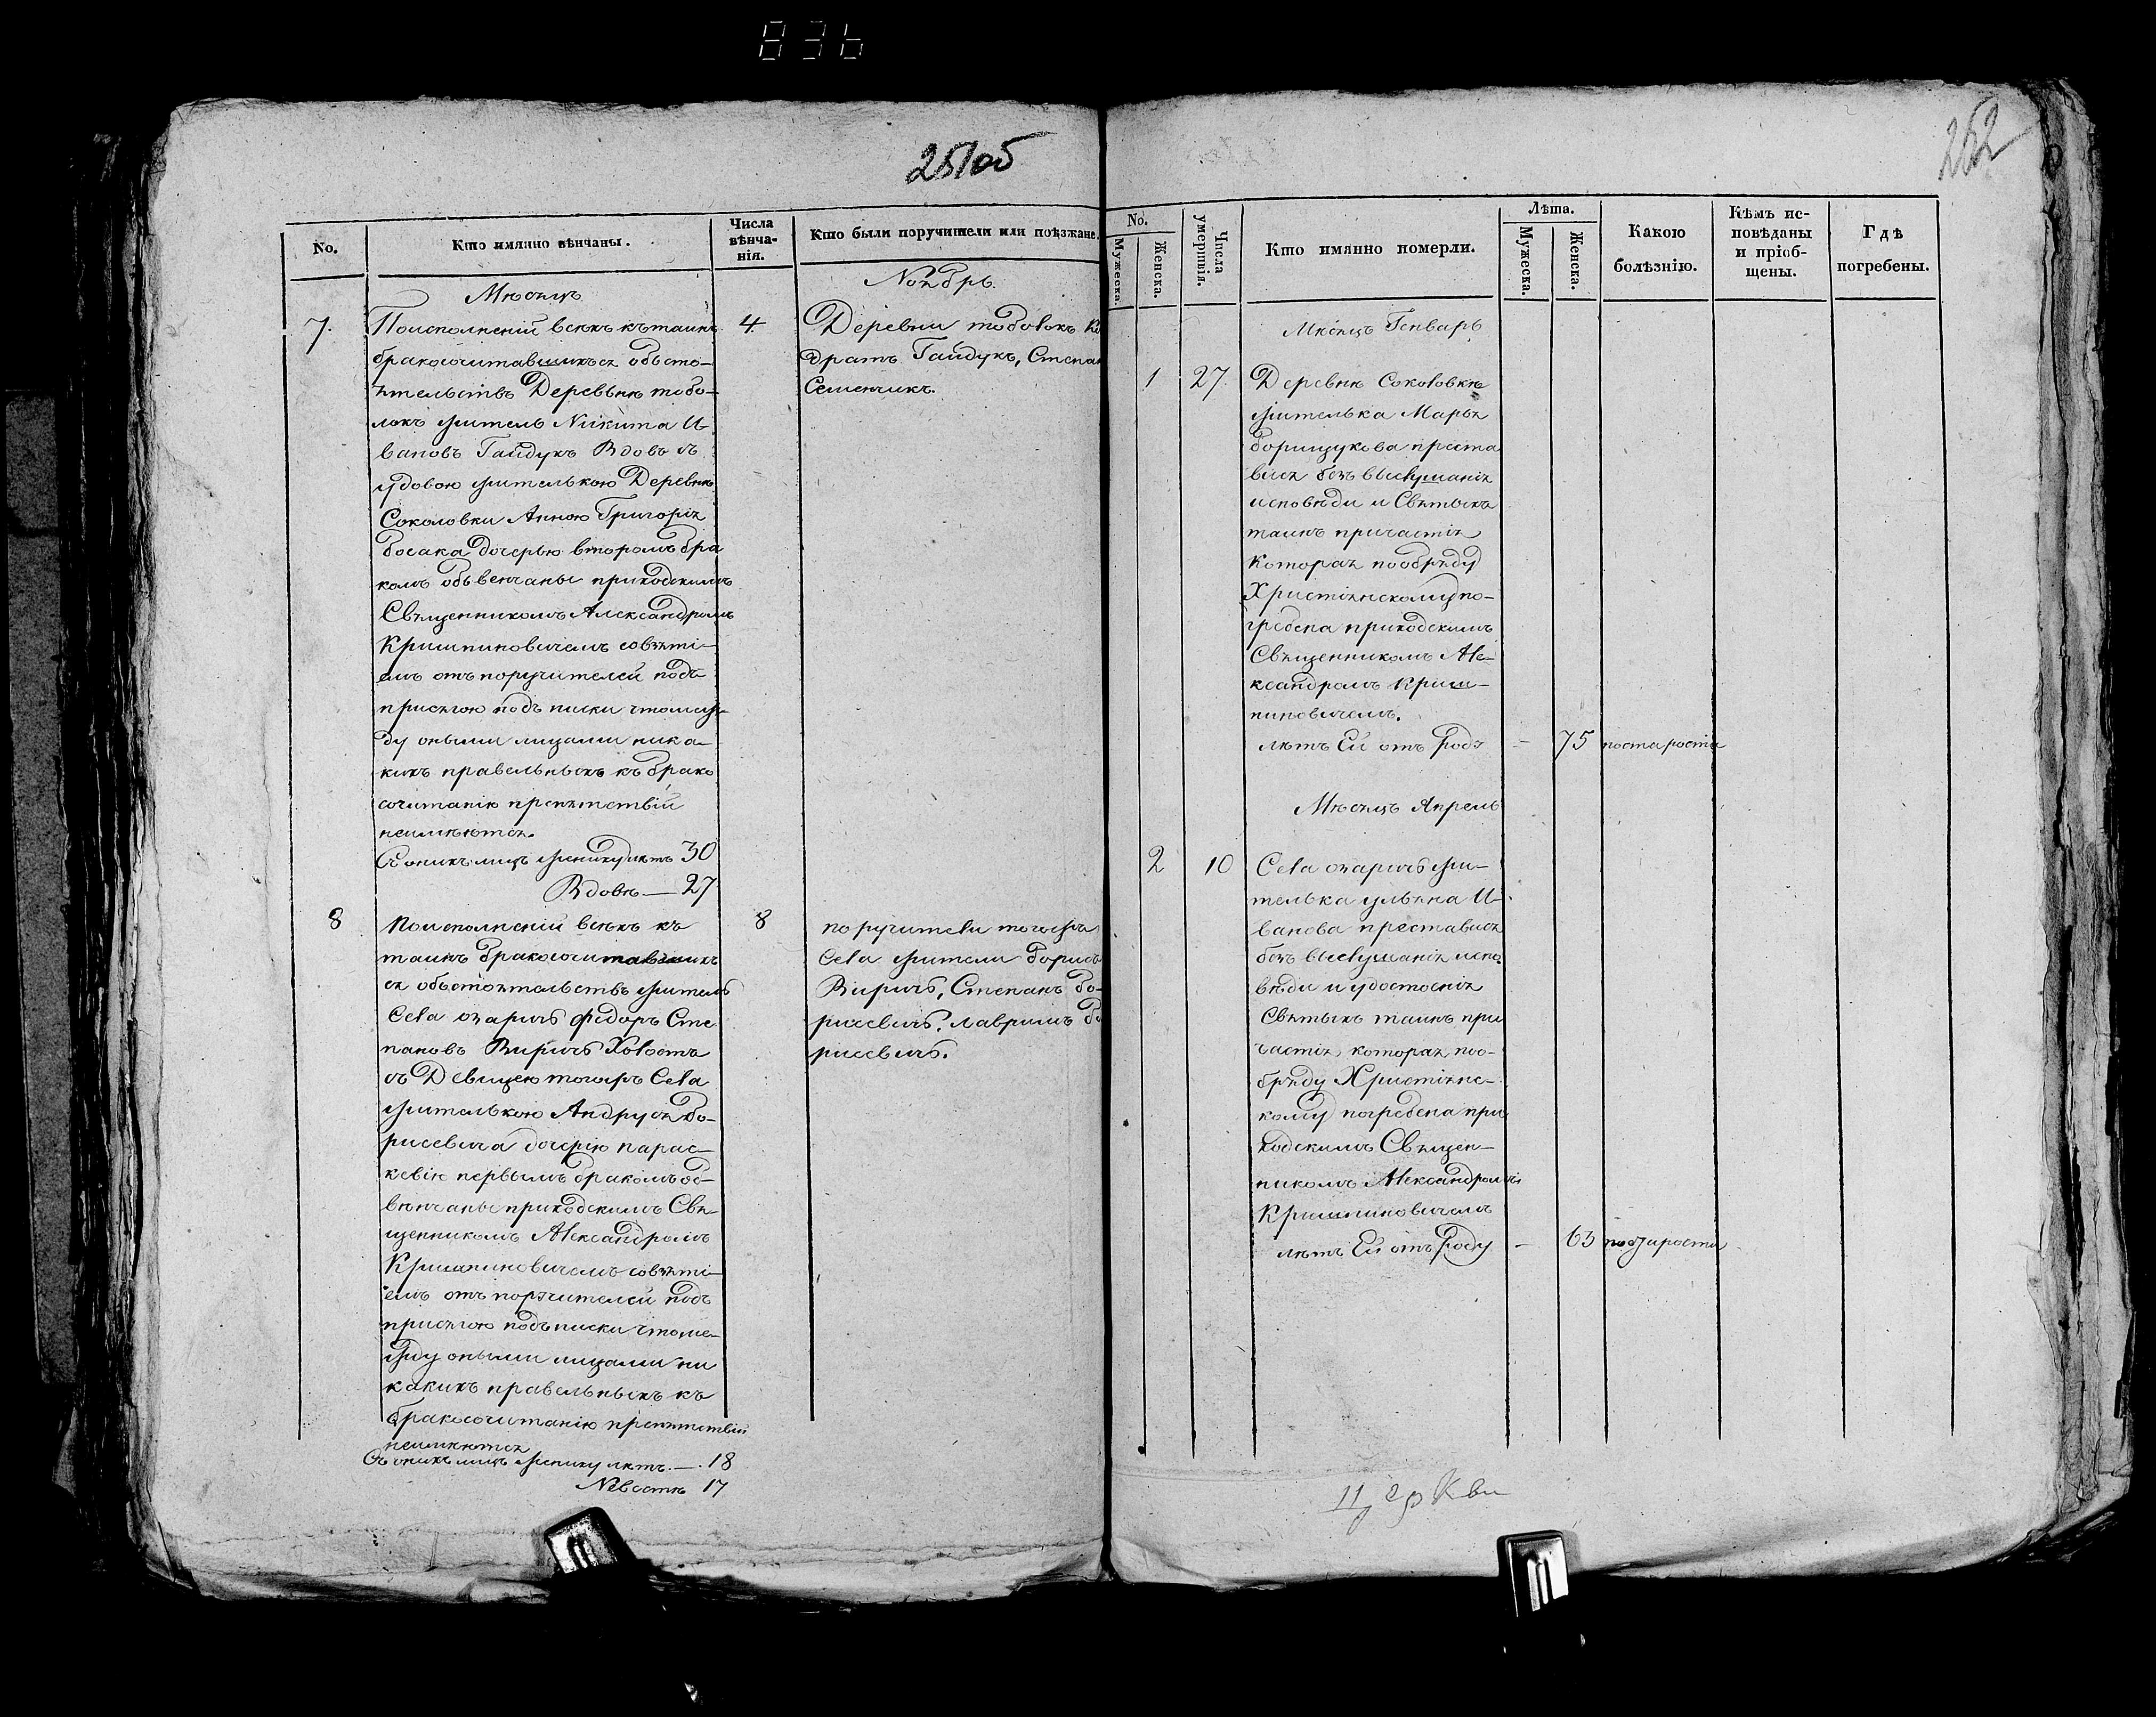 836
251об
252
No.
Кто имянно вѣнчаны.
Числа вѣнча-
нія.
Кто были поручители или поѣзжане.
Мѣсяцъ
Ноябрь.
7.
Поисполненій всѣхъ кътаинъ
бракосочитавшихъся обьсто-
ятельствъ Деревьнѣ тобо-
локъ житель Никита И
вановъ Гайдукъ Вдовъ съ
удовою жителькою Деревнѣ
Соколовки Анною Григорія
босака дочерью вторымъ бра
комъ обьвенчаны приходскимъ
Священникомъ Александромъ
Кришпиновичемъ совзяті-
емъ отъ поручителей подъ
присягою подъ писки чтомеж-
ду оными лицами ника-
кихъ правельныхъ къ брако
сочитанію препятствій
неимѣются.
Съ онихъ лицъ женихулѣтъ 30
Вдовѣ — 27
4
Деревни тоболокъ Ко
дратъ Гайдукъ, Степан
Семенчикъ.
8
Поисполненій всѣхъ къ
таинъ бракосочитавшихъ
ся обьстоятельствъ житель
Села озаричъ Федоръ Сте
пановъ Виричъ Холостъ
съ Девицею тогожъ Села
жителькою Андруся Бо-
рисевича дочерію парас-
кевію первымъ бракомъ об-
вѣнчаны приходскимъ Свя-
щенникомъ Александромъ
Кришпиновичемъ совзяті-
емъ отъ поручителей подъ
присягою подъписки чтоме-
жду оными лицами ни
какихъ правельныхъ къ
бракосочитанію препятствій
неимѣются
Съ онихъ лицъ жениху лѣтъ. — 18
Невестѣ 17
8
поручители тогожъ
Села жители Борисъ
Виричъ, Степанъ Бо-
рисевичъ, лавримъ Бо
рисевичъ.
No.
Мужеска.
Женска.
Числа
умертвія.
Кто имянно померли.
Лѣта.
Мужеска.
Женска.
Какою
болѣзнію.
Кѣмъ ис-
повѣданы
и пріоб-
щены.
Гдѣ
погребены.
Мѣсяцъ Генварь
1
27.
Деревнѣ Соколовкѣ
жителька Марья
борищукова преста
вися безъ выслушанія
исповѣди и Святыхъ
таинъ причастія
Которая пообряду
Христіянскому по-
гребена приходскимъ
Священникомъ Але-
ксандромъ Криш-
пиновичемъ.
лѣтъ Ей отъ роду
—
75
постарости
Мѣсяцъ Апрель
2
10
Села озаричъ жи-
телька ульяна И-
ванова преставися
безъ выслушанія испо
вѣди и удостоенія
Святыхъ таинъ при
частія, которая поо-
бряду Христіянс-
кому погребена при
ходскимъ Священ-
никомъ Александромъ
Кришпиновичемъ
лѣтъ Ей отъ роду
—
63